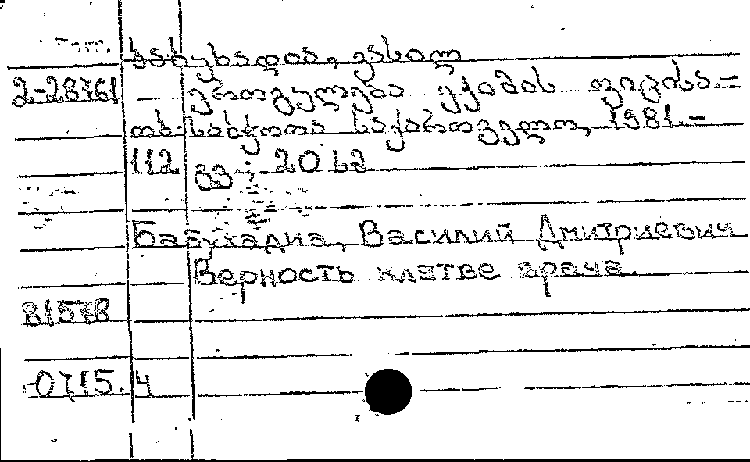 ბაბუხადია, ვასილ
2-28761 ერთგულება ექიმის ფიცისა.-
თბ. საბჭოთა საქართველო, 1981.-
112 გვ.; 20 სმ
Бабухадиа, Василий Дмитриевич
Верность клятве врача.
81578
0715.4